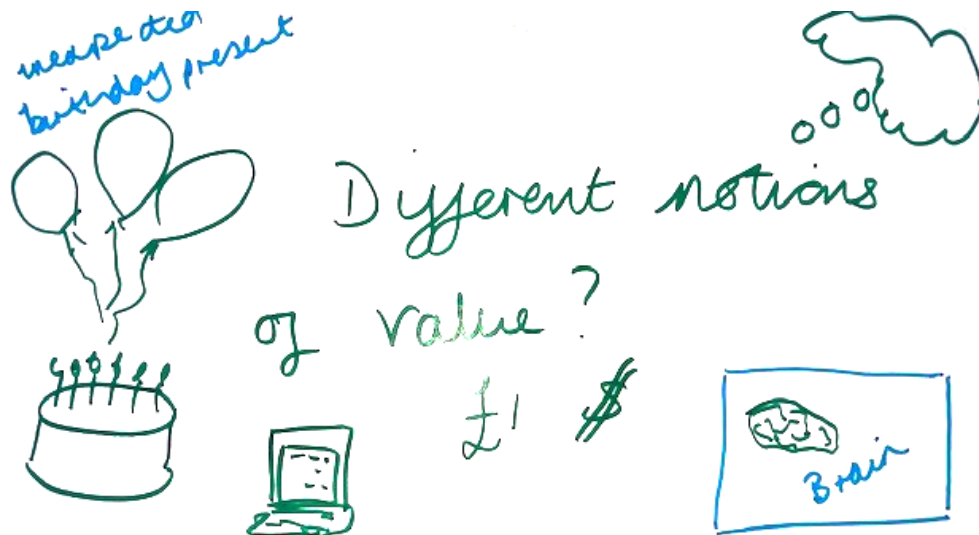 unexpected
birthday present
Different notions
of value?
£1 $
Brain